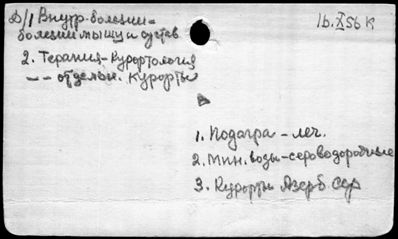 Д/1 Внутр. болезни-
болезни мышц и сустав
16.X 56 к
2. Терапия-курортология
-- отдельн. курорты
1. Подагра - леч.
2. Мин. воды-сероводородные
3. Курорты Азерб ССР